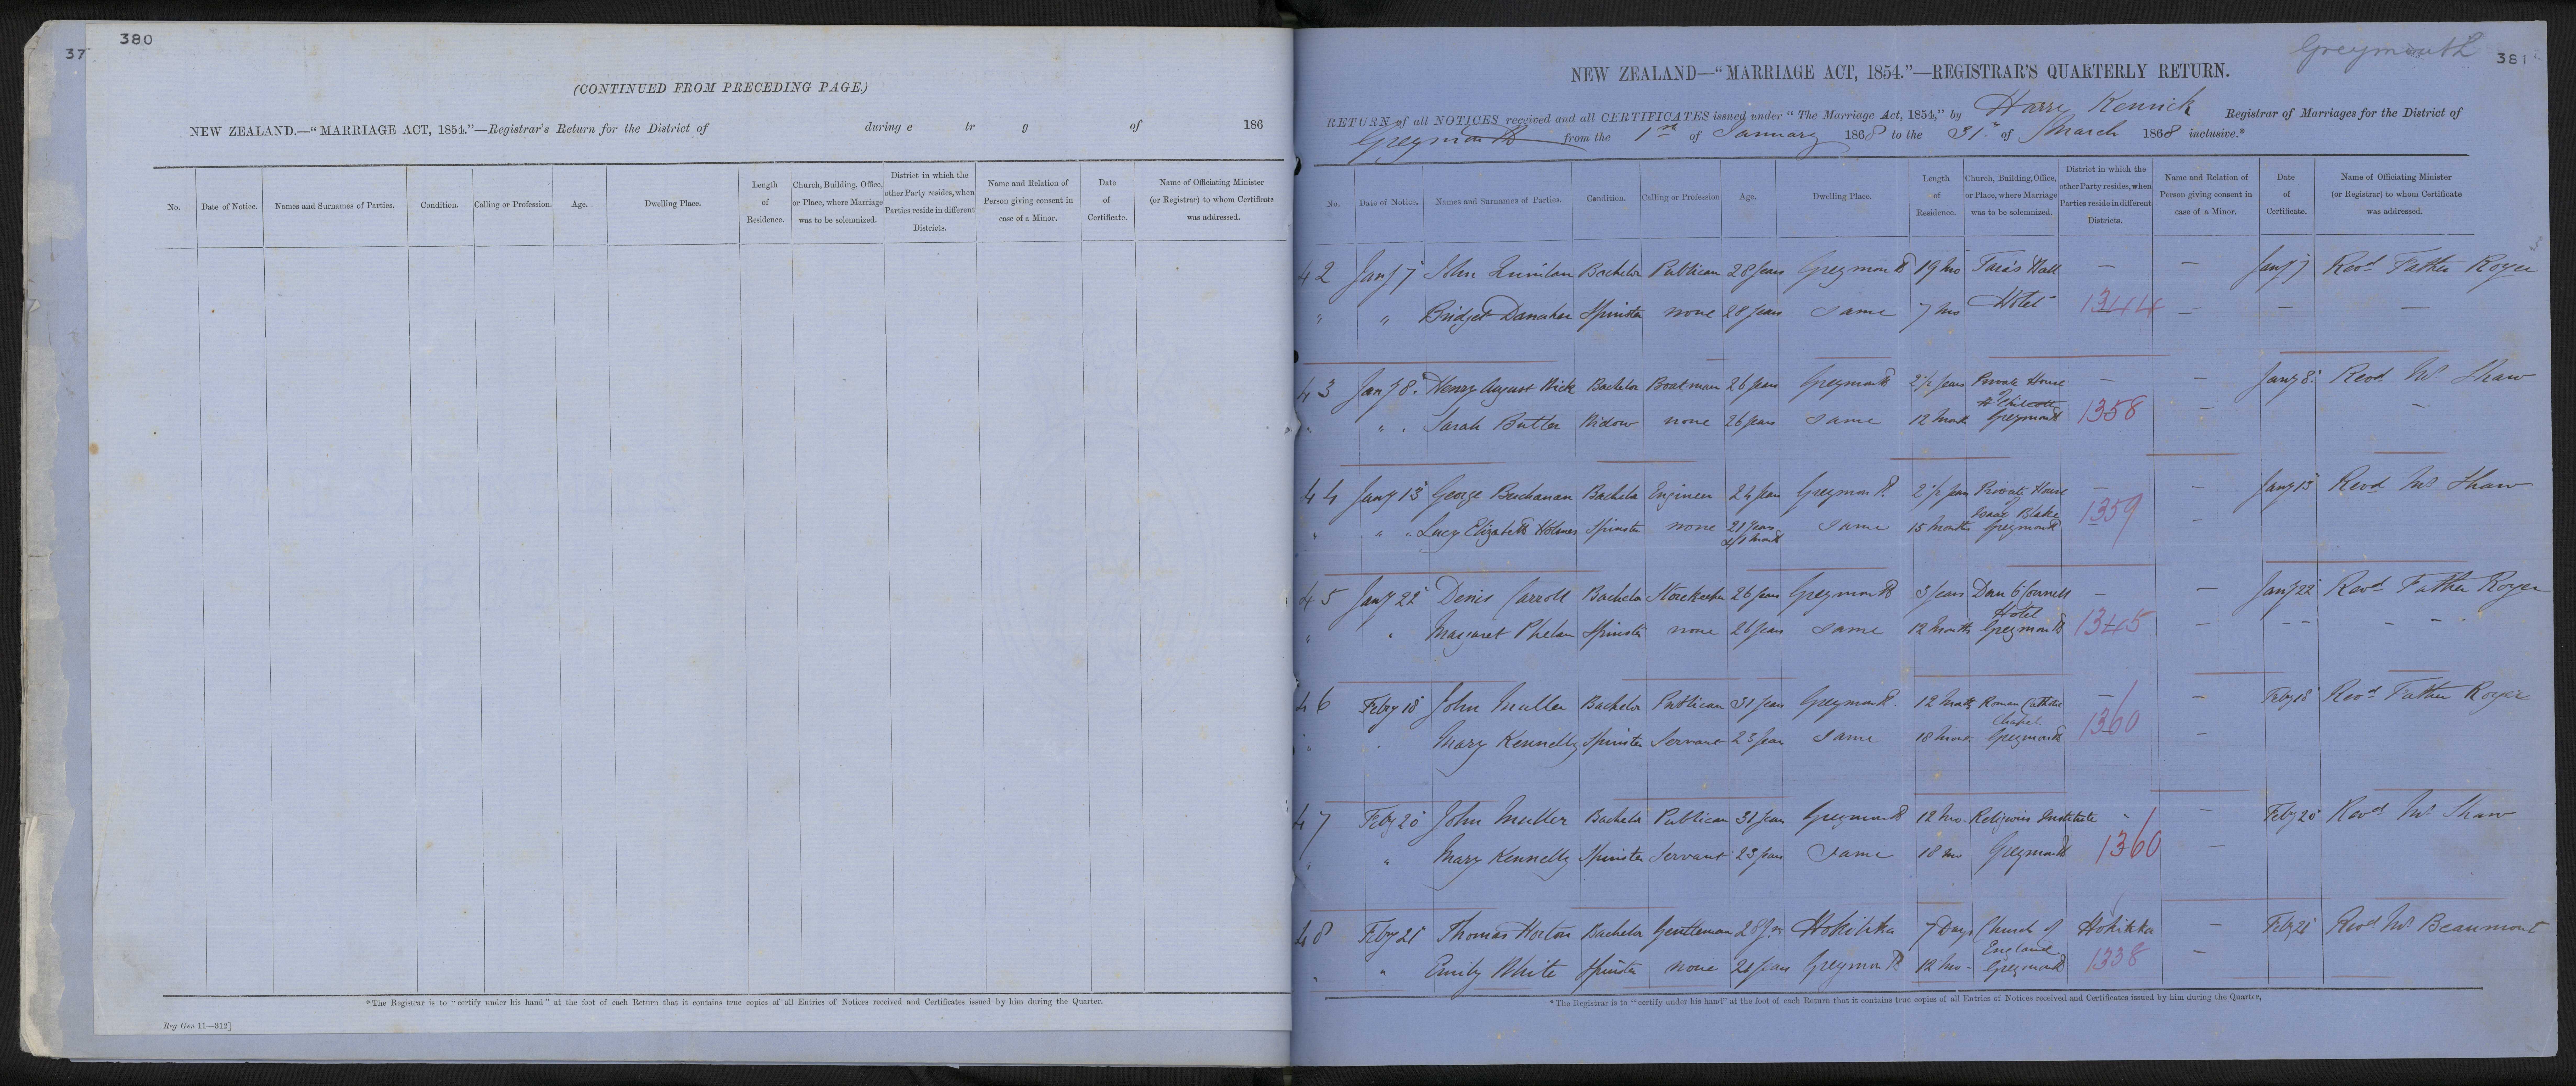 37
380
(CONTINUED FROM PRECEDING PAGE.)
NEW ZEALAND.—"MARRIAGE ACT, 1854."—Registrar's Return for the District of during e tr g of 186
No. Date of Notice. Names and Surnames of Parties. Condition. Calling or Profession. Age. Dwelling Place. Length of Residence. Church, Building, Office, or Place, where Marriage was to be solemnized. District in which the other Party resides, when Parties reside in different Districts. Name and Relation of Person giving consent in case of a Minor. Date of Certificate. Name of Officiating Minister (or Registrar) to whom Certificate was addressed.
*The Registrar is to "certify under his hand" at the foot of each Return that it contains true copies of all Entries of Notices received and Certificates issued by him during the Quarter.
Reg Gen 11—312]
Greymouth 381
NEW ZEALAND—"MARRIAGE ACT, 1854."—REGISTRAR'S QUARTERLY RETURN.
RETURN of all NOTICES received and all CERTIFICATES issued under "The Marriage Act, 1854," by Harry Kenrick Registrar of Marriages for the District of
Greymouth from the 1st of January 1868 to the 31st of March 1868 inclusive.*
No. Date of Notice. Names and Surnames of Parties. Condition. Calling or Profession Age. Dwelling Place. Length of Residence. Church, Building, Office, or Place, where Marriage was to be solemnized. District in which the other Party resides, when Parties reside in different Districts. Name and Relation of Person giving consent in case of a Minor. Date of Certificate. Name of Officiating Minister (or Registrar) to whom Certificate was addressed.
42 Jany 7 John Quinlan Bachelor Publican 28 years Greymouth 19 mo Tara's Hall — — Jany 7 Revd Father Royer
" " Bridget Danaher Spinster none 28 years Same 7 mo Hotel 1344 — — —
43 Jany 8. Henry August Wick Bachelor Boatman 26 years Greymouth 2½ years Private House — — Jany 8. Revd Mr Shaw
" " Sarah Butler Widow none 26 years Same 12 month Greymouth 1358 — —
44 Jany 13 George Buchanan Bachelor Engineer 24 years Greymouth 2½ years Private House — — Jany 13 Revd Mr Shaw
" " Lucy Elizabeth Holmes Spinster none 21 years Same 15 months Isaac Blake Greymouth 1359 —
45 Jany 22 Denis Carroll Bachelor Storekeeper 26 years Greymouth 3 years Dan O'Connell — — Jany 22 Revd Father Royer
" " Margaret Phelan Spinster none 26 years Same 12 months Hotel Greymouth 1345 — - - - - -
46 Feby 18 John Muller Bachelor Publican 31 years Greymouth. 12 month Roman Catholic — — Feby 18 Revd Father Royer
" " Mary Kennelly Spinster Servant 23 years Same 18 month Chapel Greymouth 1360 —
47 Feby 20 John Muller Bachelor Publican 31 years Greymouth 12 mo. Religious Institute - — Feby 20 Revd Mr Shaw
" " Mary Kennelly Spinster Servant 23 years Same 18 mo Greymouth 1360 —
48 Feby 21 Thomas Horton Bachelor Gentleman 28 yrs Hokitika 7 Days Church of Hokitika — Feby 21 Revd Mr Beaumont
" " Emily White Spinster none 21 years Greymouth 12 mo - England Greymouth 1338 —
*The Registrar is to "certify under his hand" at the foot of each Return that it contains true copies of all Entries of Notices received and Certificates issued by him during the Quarter.